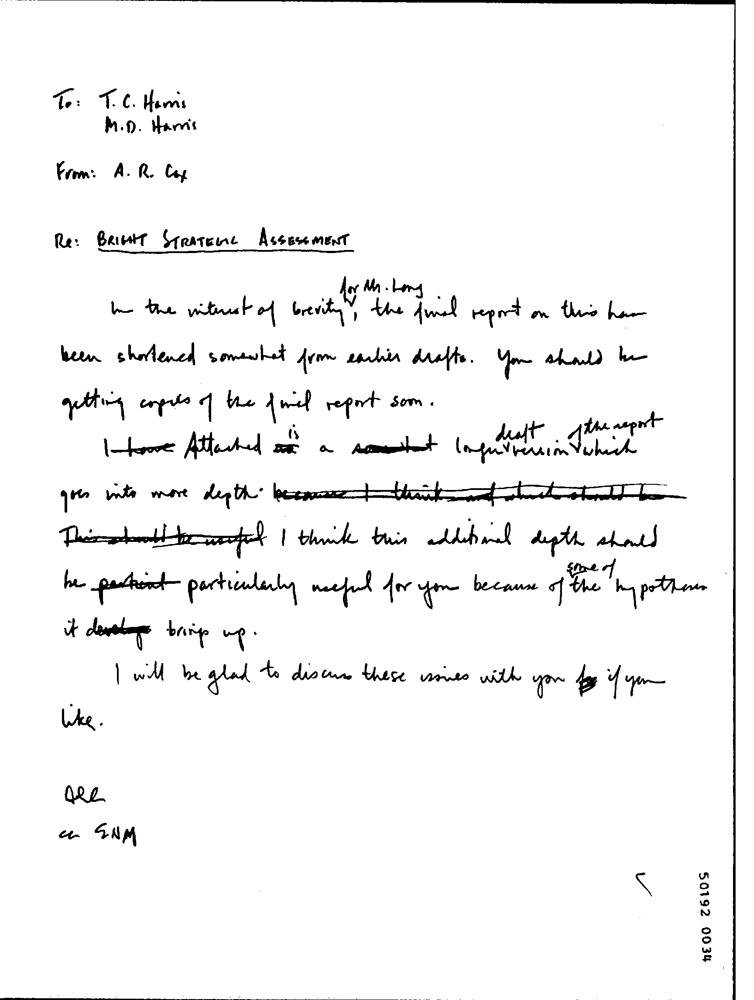 To: T. C. Harris
M.D. Harris
From: A. R. Cox
Re: BRIGHT STRATEGIC ASSESSMENT
for Mr. Long
In the interest of brevity, the final report on this has
been shortened somewhat from earlier drafts. You should be
getting copies of the final report soon.
I have Attached is a somewhat longer draft version of the report which
goes into more depth. because I think and which should be
This should be useful I think this additional depth should
be pertinent particularly useful for you because of some of the hypotheses
it develops brings up.
I will be glad to discuss these issues with you if you
like.
ARC
cc ENM
50192 0034